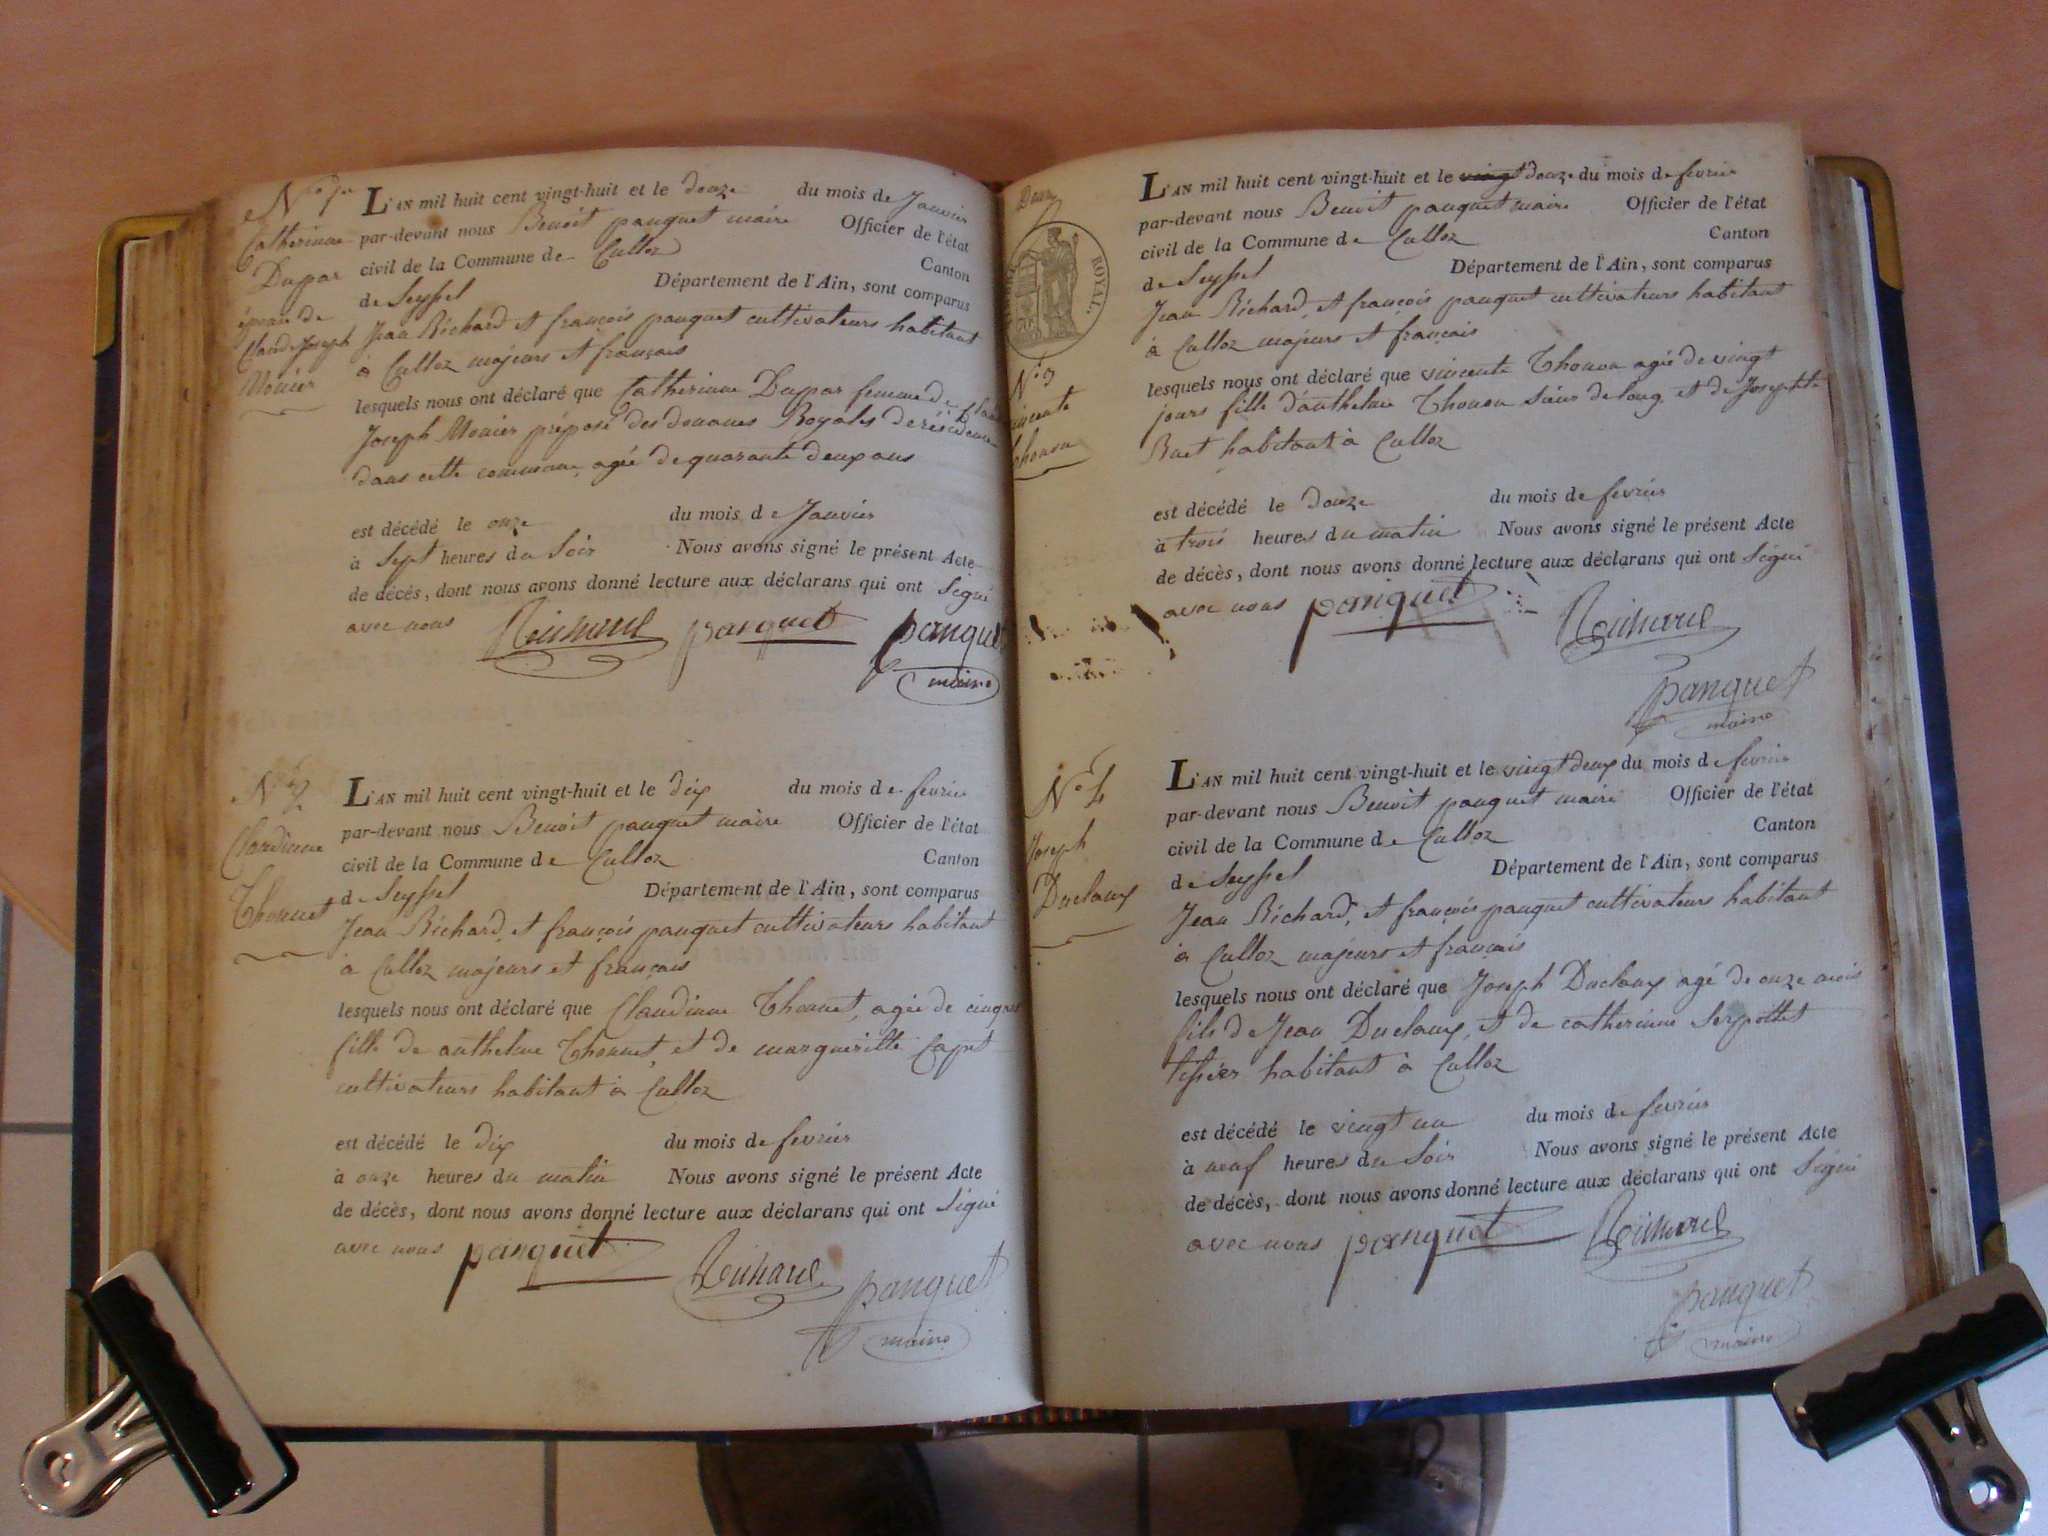 N.° 1er
Catherinne
Dupar
épouse de
Claude Joseph
Monier
L'AN mil huit cent vingt-huit et le douze du mois de Janvier
par-devant nous Benoit pauquet maire Officier de l'état
civil de la Commune de Culloz Canton
de Seyssel Département de l'Ain, sont comparus
Jean Richard, et françois pauquet cultivateurs habitant
à Culloz majeurs et français
lesquels nous ont déclaré que Catherinne Dupar femme de Claude
Joseph Monier préposé des douanes Royales de résidence
dans cette commune, agée de quarante deux ans
est décédé le onze du mois de Janvier
à sept heures du Soir Nous avons signé le présent Acte
de décés, dont nous avons donné lecture aux déclarans qui ont Signé
avec nous Richard pauquet pauquet
maire
N.° 2
Claudinne
Thonnet
L'AN mil huit cent vingt-huit et le dix du mois de fevrier
par-devant nous Benoit pauquet maire Officier de l'état
civil de la Commune de Culloz Canton
de Seyssel Département de l'Ain, sont comparus
Jean Richard, et françois pauquet cultivateurs habitant
à Culloz majeurs et français
lesquels nous ont déclaré que Claudinne Thonnet, agée de cinq
fille de anthelme Thonnet, et de margueritte Capet
cultivateurs habitant à Culloz
est décédé le dix du mois de fevrier
à onze heures du matin Nous avons signé le présent Acte
de décès, dont nous avons donné lecture aux déclarans qui ont Signé
avec nous pauquet Richard pauquet
maire
Deux
ROYAL
N.° 3
vincente
Thonon
L'AN mil huit cent vingt-huit et le vingt douze du mois de fevrier
par-devant nous Benoit pauquet maire Officier de l'état
civil de la Commune de Culloz Canton
de Seyssel Département de l'Ain, sont comparus
Jean Richard, et françois pauquet cultivateurs habitant
à Culloz majeurs et français
lesquels nous ont déclaré que vincente Thonon agée de vingt
jours fille d'anthelme Thonon Sieur de long et de Josephte
Buet habitant à Culloz
est décédé le douze du mois de fevrier
à trois heures du matin Nous avons signé le présent Acte
de décès, dont nous avons donné lecture aux déclarans qui ont Signé
avec nous pauquet Richard
pauquet
maire
N.° 4
Joseph
Duclaux
L'AN mil huit cent vingt-huit et le vingt deux du mois de fevrier
par-devant nous Benoit pauquet maire Officier de l'état
civil de la Commune de Culloz Canton
de Seyssel Département de l'Ain, sont comparus
Jean Richard, et françois pauquet cultivateurs habitant
à Culloz majeurs et français
lesquels nous ont déclaré que Joseph Duclaux agé de onze mois
fils de Jean Duclaux, et de catherinne Serpollet
tissier habitant à Culloz
est décédé le vingt un du mois de fevrier
à neuf heures du Soir Nous avons signé le présent Acte
de décès, dont nous avons donné lecture aux déclarans qui ont Signé
avec nous pauquet Richard
pauquet
maire